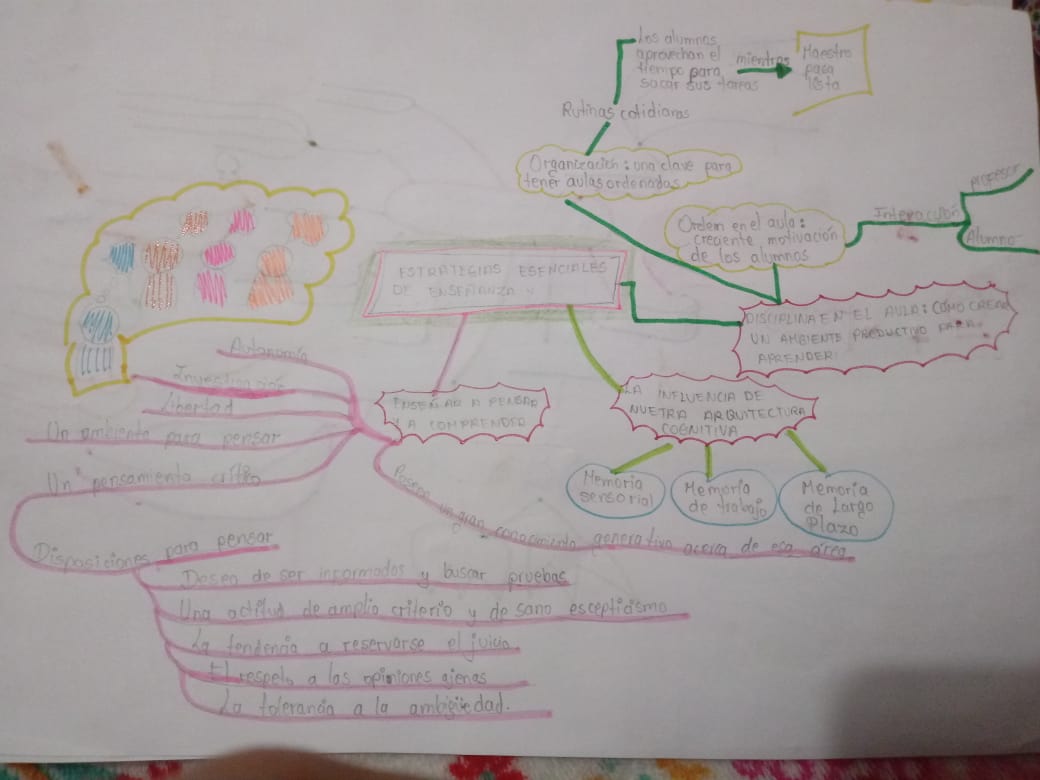 Los alumnos
aprovechan el
tiempo para
sacar sus tareas
mientras
Maestro
pasa
lista
Rutinas cotidianas
Organización: una clave para
tener aulas ordenadas
Orden en el aula:
creciente motivación
de los alumnos
Interacción
profesor
Alumno
ESTRATEGIAS ESENCIALES
DE ENSEÑANZA
DISCIPLINA EN EL AULA: CÓMO CREAR
UN AMBIENTE PRODUCTIVO PARA
APRENDER
ENSEÑAR A PENSAR
Y A COMPRENDER
LA INFLUENCIA DE
NUETRA ARQUITECTURA
COGNITIVA
Memoria
sensorial
Memoria
de trabajo
Memoria
de Largo
Plazo
Autonomía
Investigación
libertad
Un ambiente para pensar
Un pensamiento crítico
Poseen un gran conocimiento generativo acerca de esa área
Disposiciones para pensar
Deseo de ser informados y buscar pruebas
Una actitud de amplio criterio y de sano escepticismo
La tendencia a reservarse el juicio.
El respeto a las opiniones ajenas
La tolerancia a la ambigüedad.